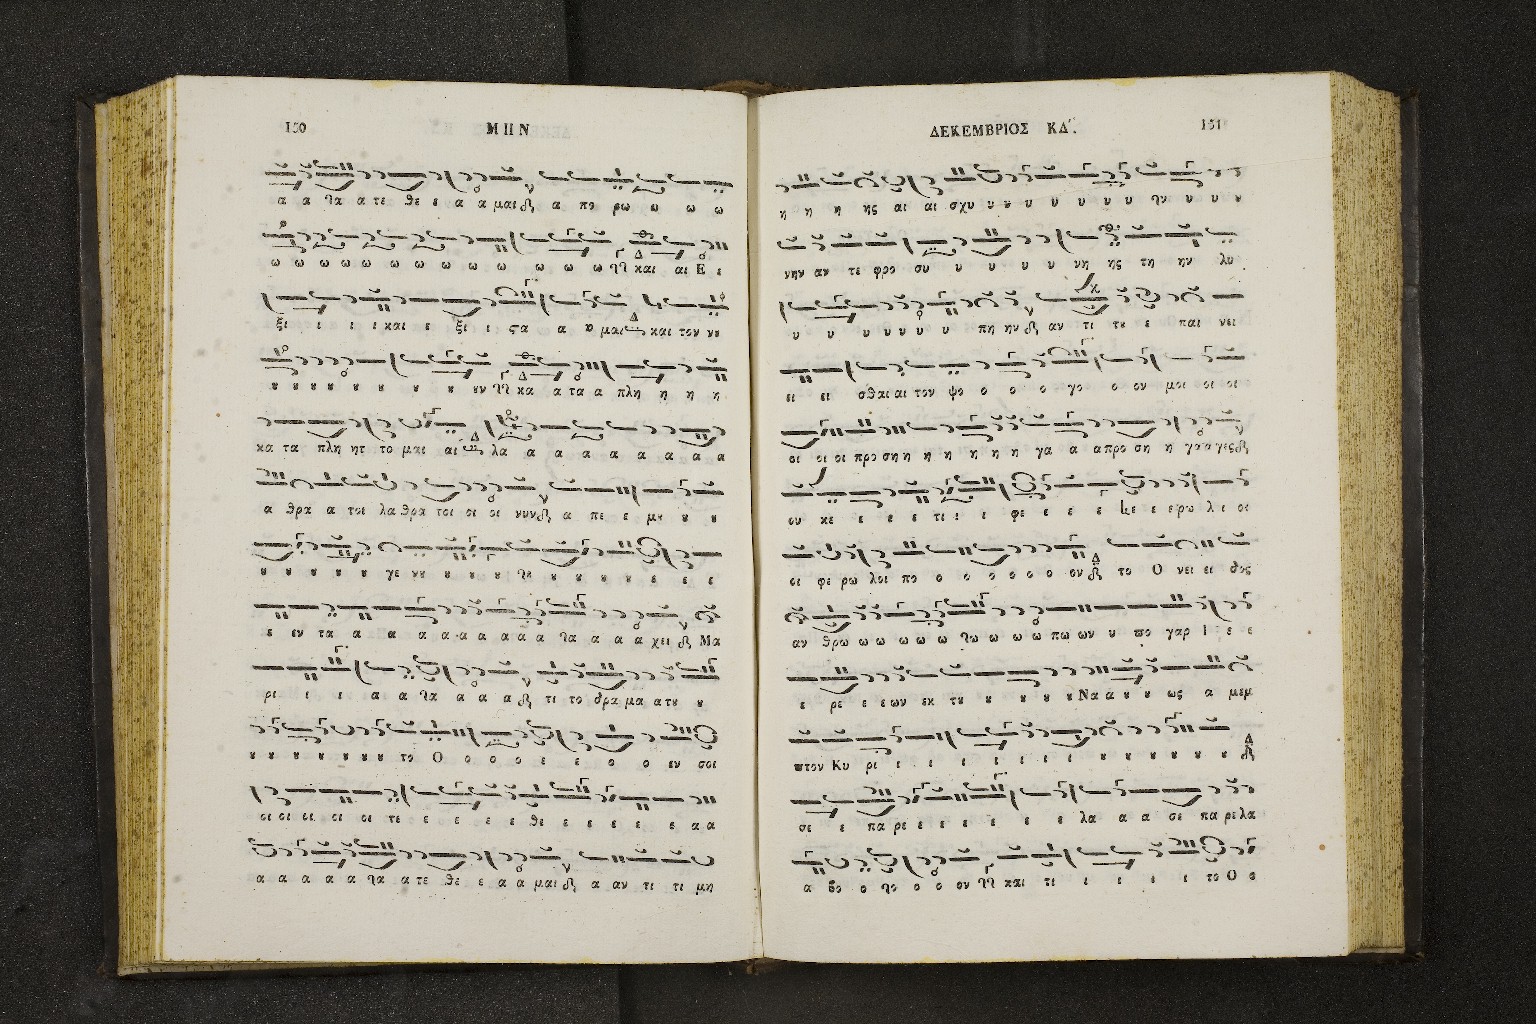 150 ΜΗΝ
α α λα α τε θε ε α α μαι α πο ρω ω ω ω
ω ω ω ω ω ω ω ω ω ω ω ω ω και αι Ε ε
ξι ι ι ι και ε ξι ι ςα α α μαι και τον νυ
ȣ ȣ ȣ ȣ ȣ ȣ ȣ ȣ ȣν κα α τα α πλη η η η
κα τα πλη ητ το μαι αι λα α α α α α α α α
α θρα α τοι λα θρα τοι οι οι νυν α πε ε μι ȣ ȣ
ȣ ȣ ȣ ȣ ȣ γε νȣ ȣ ȣ ȣ ȣ ȣ ȣ ȣ ε ε ε
ε εν τα α α α α α α α α α λα α α α χει Μα
ρι ι ι α α λα α α α τι το δρα μα α τȣ ȣ
ȣ ȣ ȣ ȣ ȣ ȣ ȣ ȣ το Ο ο ο ο ε ε ο ο εν σοι
οι οι οι οι οι τε ε ε ε ε θε ε ε ε ε ε α α
α α α α α λα α τε θε ε α α μαι α αν τι τι μη
ΔΕΚΕΜΒΡΙΟΣ ΚΔ΄. 151
η η η ης αι αι σχυ υ υ υ υ υ υ υ υ υ υ
νην αν τε φρο συ υ υ υ υ υ νη ης τη ην λυ
υ υ υ υ υ υ υ πη ην αν τι τȣ ε παι νει
ει ει σθαι αι τον ψο ο ο ο γο ο ον μοι οι οι
οι οι οι προ ση η η η η η η γα α α προ ση η γα α γες
ου κε ε ε ε τι ι ι φε ε ε ε ε ε ερω λι οι
οι φε ρω λοι πο ο ο ο ο ο ο ον το Ο νει ει δος
αν θρω ω ω ω ω ω ω ω ω πω ων υ πο γαρ Ι ε ε
ε ρε ε ε ων εκ τȣ ȣ ȣ ȣ ȣ Να α ȣ ȣ ως α μεμ
πτον Κυ ρι ι ι ι ι ι ι ι ȣ ȣ ȣ ȣ ȣ ȣ
σε ε πα ρε ε ε ε ε ε ε λα α α σε πα ρε λα
α βο ο ο ο ο ον και τι ι ι ι ι το Ο ο